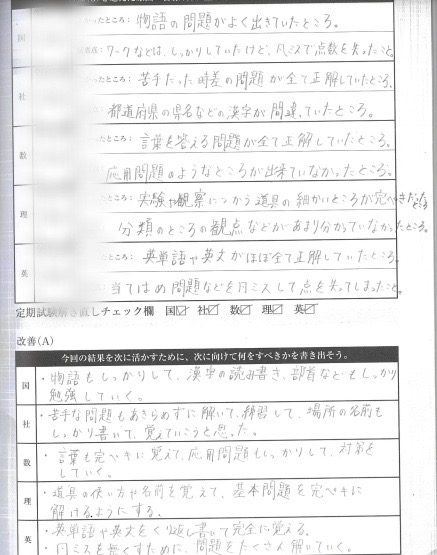 ったところ：物語の問題がよく出きていたところ。
国
ワークなどは、しっかりしていたけど、凡ミスで点数を失ったこと。
ったところ：苦手だった時差の問題が全て正解していたところ。
社
都道府県の県名などの漢字が間違っていたところ。
たところ：言葉を答える問題が全て正解していたところ。
数
応用問題のようなところが出来ていなかったところ。
たところ：実験や観察につかう道具の細かいところが完ぺきだったところ
理
分類のところの観点などがあまり分かっていなかったところ。
たところ：英単語や英文がほぼ全て正解していたところ。
英
当てはめ問題などを凡ミスして点を失ってしまったこと。
定期試験解き直しチェック欄 国☑ 社☑ 数☑ 理☑ 英☑
改善(A)
今回の結果を次に活かすために、次に向けて何をすべきかを書き出そう。
国
・物語もしっかりして、漢字の読み書き、部首などもしっかり
勉強していく。
社
・苦手な問題もあきらめずに解いて、練習して、場所の名前も
しっかり書いて、覚えていこうと思った。
数
・言葉も完ペキに覚えて、応用問題もしっかりして、対策を
していく。
理
・道具の使い方や名前を覚えて、基本問題を完ペキに
解けるようにする。
英
・英単語や英文をくり返し書いて完全に覚える。
・凡ミスを無くすために、問題をたくさん解いていく。